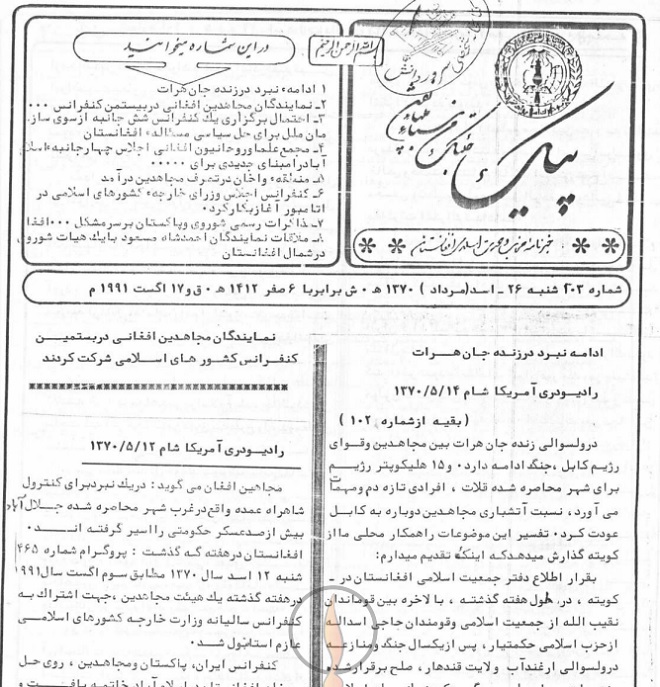 بسم الله الرحمن الرحیم
در این شماره میخوانید
۱ ادامهء نبرد در زنده جان هرات
۲ـ نمایندگان مجاهدین افغانی در بیستمن کنفرانس ۰۰۰
۳ـ احتمال برگزاری یك کنفرانس شش جانبه ازسوی ساز.
مان ملل برای حل سیاسی مسالهء افغانستان
۴ـ مجمع علما وروحانیون افغانی اجلاس چهار جانبهء اسلا
آباد را مبنای جدیدی برای ۰۰۰۰۰
۵ـ منطقهء واخان در تصرف مجاهدین درآمد
۶ـ کنفرانس اجلاس وزرای خارجهء کشورهای اسلامی در
استامبور آغاز بکار کرد۰
۷ـ مذاکرات رسمی شوروی وپاکستان برسر مشکل ۰۰۰افغا
۸ـ ملاقات نمایندگان احمدشاه مسعود بایك هیات شوروی
در شمال افغانستان
پیام
خبرنامه حزب وحدت اسلامی افغانستان
شماره ۲۰۳ شنبه ۲۶ ـ اسد(مرداد ) ۱۳۷۰ هـ ۰ ش برابر با ۶ صفر ۱۴۱۲ هـ ۰ ق و ۱۷ اگست ۱۹۹۱ م
ادامه نبرد در زنده جان هـرات
رادیـودری آمریکا شام ۱۳۷۰/۵/۱۴
( بقیه ازشماره ۱۰۲ )
درولسوالی زنده جان هرات بین مجاهدین وقوای
رژیم کابل ،جنگ ادامه دارد۰ و ۱۵ هلیکوپتر رژیم
برای شهر محاصره شده قلات ، افرادی تازه دم ومهمات
می آورد، نسبت آتشباری مجاهدین دوباره به کابل
عودت کرد۰ تفسیر این موضوعات راهمکار محلی مااز
کویته گذارش میدهدکه اینك تقدیم میدارم:
بقرار اطلاع دفتر جمعیت اسلامی افغانستان در ـ
کویته ، در طول هفته گذشته ، بالاخره بین قوماندان
نقیب الله از جمعیت اسلامی وقومندان حاجی اسدالـه
ازحزب اسلامی حکمتیار ، پس ازیکسال جنگ ومنازعـه
درولسوالی ارغندآب ولایت قندهار، صلح برقرارشد
نمایندگان مجاهدین افغانی دربیستمیـن
کنفـرانس کشـور هـای اسـلامی شرکت کردند
رادیـودری آمریکا شام ۱۳۷۰/۵/۱۲
مجاهین افغان می گوید : دریك نبردبرای کنترول
شاهراه عمده واقع درغرب شهر محاصره شده جـلال آباد
بیش ازصدعسکر حکومتی رااسیر گرفتـه انـــد۰
افغانستان درهفته گـه گذشت : پروگـرام شماره ۴۶۵
شنبه ۱۲ اسد سال ۱۳۷۰ مطابق سوم اگست سال۱۹۹۱
درهفته گذشته یك هیئت مجاهدین ،جهت اشتراك بـه
کنفرانس سالیانه وزارت خارجـه کشورهای اسـلامـــی
عازم استانبول شـد۰
کنفرانس ایران، پاکستان ومجاهدین ، روی حـل